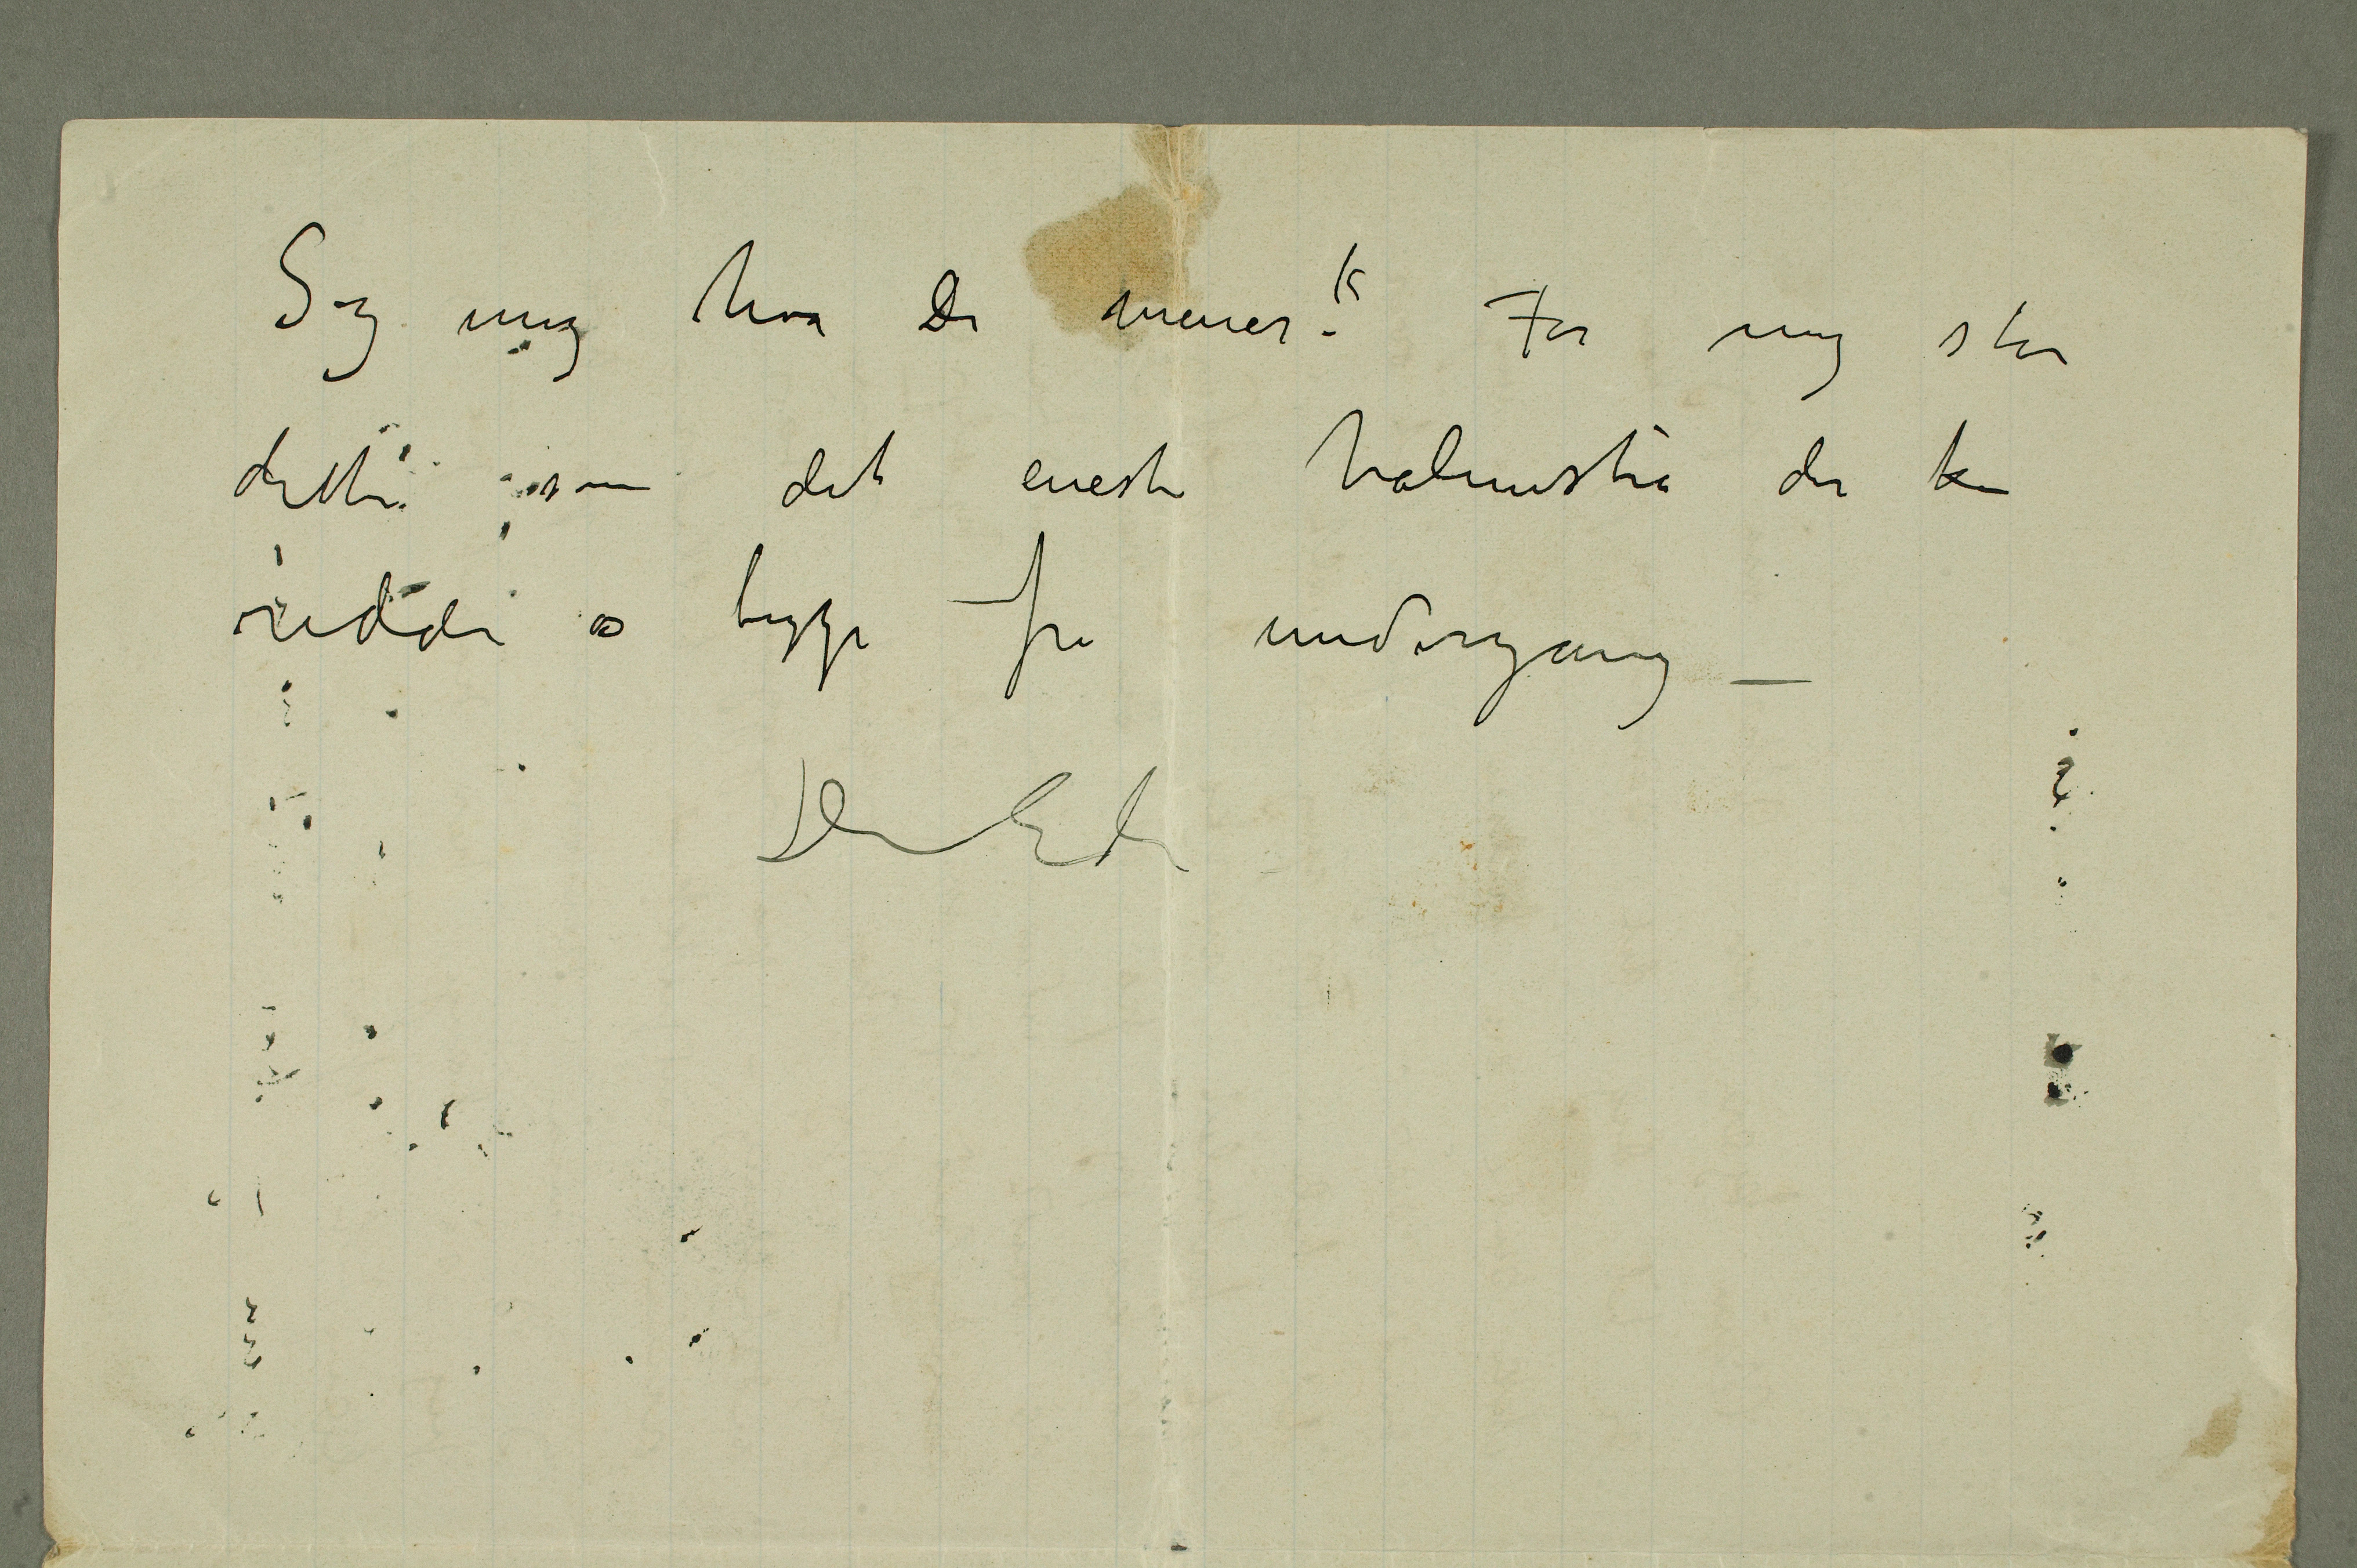 Sig mig hva De mener? For mig står
dette som det eneste halmstrå der kan
redde os begge fra undergang —